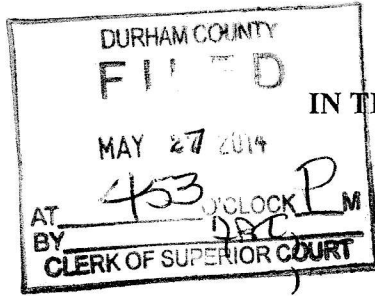 DURHAM COUNTY
FILED
IN
MAY 27 2014
AT 453 O'CLOCK P M
BY
CLERK OF SUPERIOR COURT
)